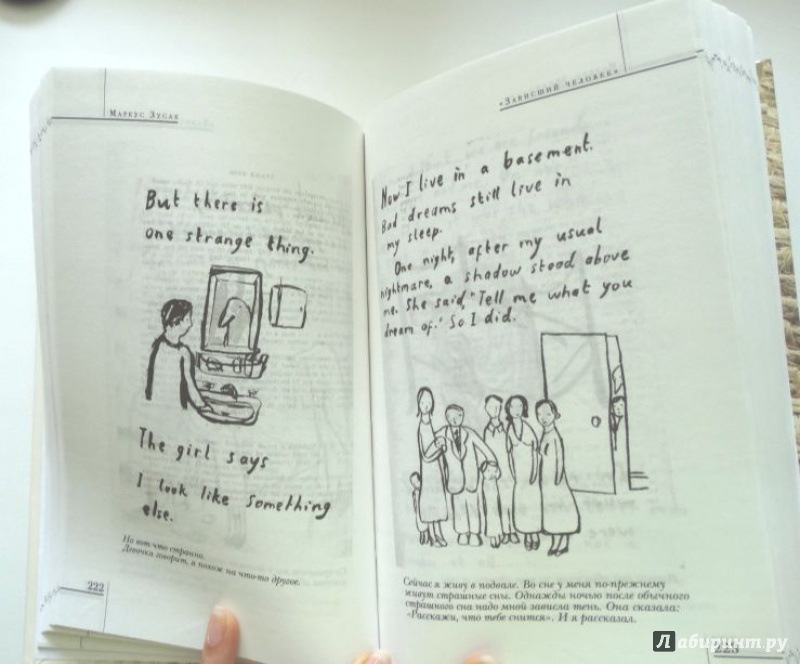 Маркус Зусак
But there is
one strange thing.
The girl says
I look like something
else.
Но вот что странно.
Девочка говорит, я похож на что-то другое.
222
«Зависший человек»
Now I live in a basement.
Bad dreams still live in
my sleep.
One night, after my usual
nightmare, a shadow stood above
me. She said "Tell me what you
dream of." So I did.
Сейчас я живу в подвале. Во сне у меня по-прежнему
живут страшные сны. Однажды ночью после обычного
страшного сна надо мной зависла тень. Она сказала:
«Расскажи, что тебе снится». И я рассказал.
223
Лабиринт.ру